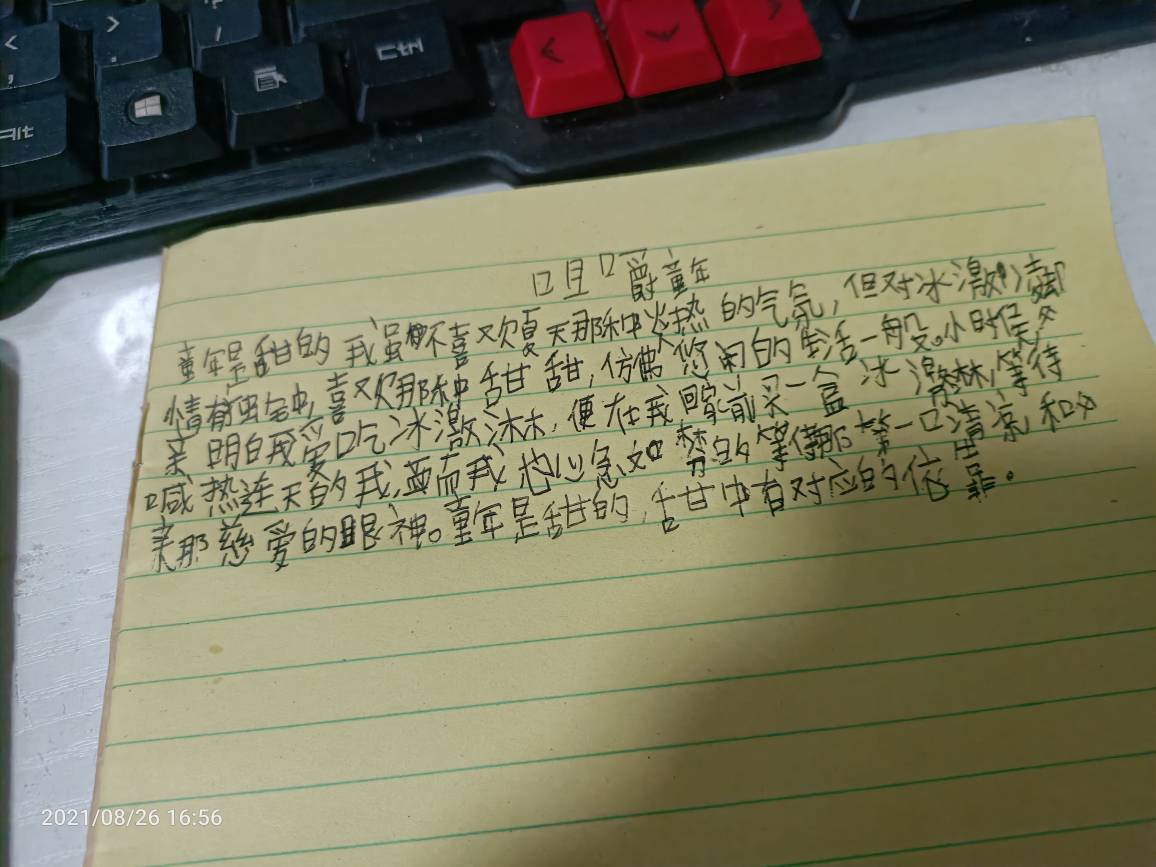 < ,
> .
? /
Ctrl
Alt
咀嚼童年
童年是甜的 我虽然不喜欢夏天那种炎热的气氛,但对冰激凌却
情有独钟,喜欢那种甜甜,仿佛悠闲的生活一般。小时候,父
亲明白我爱吃冰激淋,便在我回家前买一盒冰激淋,等待
喊热连天的我,而我也心急如焚的等待那第一口清凉和父
亲那慈爱的眼神。童年是甜的,甜中有对应的依靠。
2021/08/26 16:56